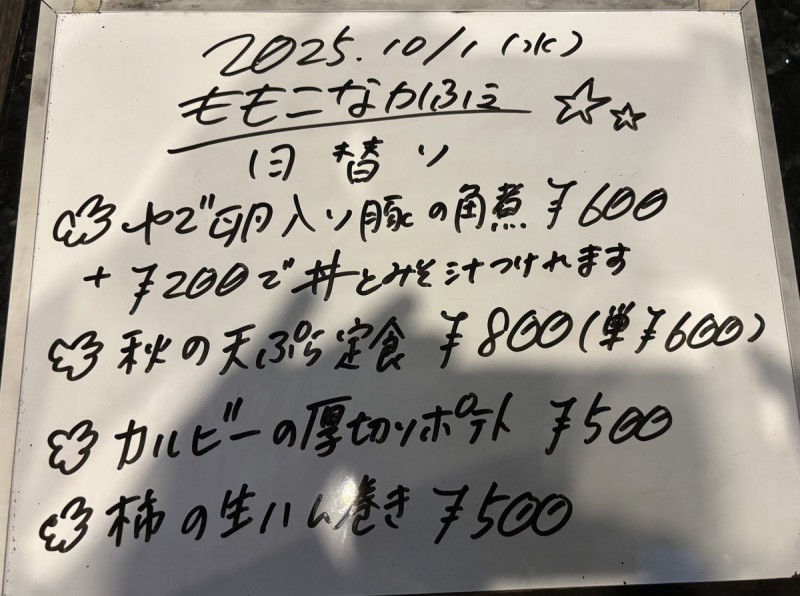 2025.10/1(水)
ももこなかふぇ ☆☆
日替り
ゆで卵入り豚の角煮 ¥600
+ ¥200で丼とみそ汁つけれます
秋の天ぷら定食 ¥800(単¥600)
カルビーの厚切りポテト ¥500
柿の生ハム巻き ¥500